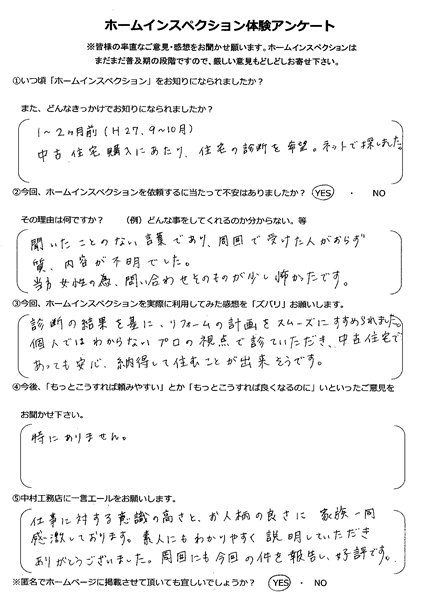 ホームインスペクション体験アンケート
※皆様の率直なご意見・感想をお聞かせ願います。ホームインスペクションは
まだまだ普及期の段階ですので、厳しい意見もどしどしお寄せ下さい。
①いつ頃「ホームインスペクション」をお知りになられましたか？
また、どんなきっかけでお知りになられましたか？
1～2ヶ月前(H27.9～10月)
中古住宅購入にあたり、住宅の診断を希望。ネットで探しました。
②今回、ホームインスペクションを依頼するに当たって不安はありましたか？ YES ・ NO
その理由は何ですか？ （例）どんな事をしてくれるのか分からない。等
聞いたことのない言葉であり、周囲で受けた人がおらず
質、内容が不明でした。
当方女性の為、問い合わせそのものが少し怖かったです。
③今回、ホームインスペクションを実際に利用してみた感想を「ズバリ」お願いします。
診断の結果を基に、リフォームの計画をスムーズにすすめられました。
個人ではわからないプロの視点で診ていただき、中古住宅で
あっても安心、納得して住むことが出来そうです。
④今後、「もっとこうすれば頼みやすい」とか「もっとこうすれば良くなるのに」いといったご意見を
お聞かせ下さい。
特にありません。
⑤中村工務店に一言エールをお願いします。
仕事に対する意識の高さと、お人柄の良さに 家族一同
感激しております。素人にもわかりやすく説明していただき
ありがとうございました。周囲にも今回の件を報告し、好評です。
※匿名でホームページに掲載させて頂いても宜しいでしょうか？ YES ・ NO